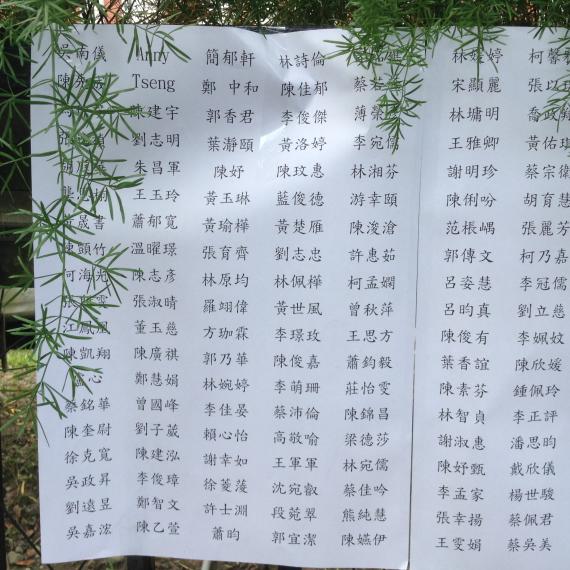 吳南儀 Anny 簡郁軒 林詩倫 林媛婷 柯馨
Tseng 鄭中和 陳佳郁 宋顯麗 張以
陳建宇 郭香君 李俊傑 林墉明 喬政
劉志明 葉瀞頤 黃洛婷 李宛儒 王雅卿 黃佑
朱昌軍 陳妤 陳玟惠 林湘芬 謝明珍 蔡宗衛
王玉玲 黃玉琳 藍俊德 游幸頤 陳俐吩 胡育慧
晟書 蕭郁寬 黃瑜樺 黃楚雁 陳浚滄 范棖嵎 張麗芳
陳頭竹 溫曜璟 張育齊 劉志忠 許惠茹 郭傳文 柯乃嘉
何海光 陳志彥 林原均 林佩樺 柯孟嫻 呂姿慧 李冠儒
張雯 張淑晴 羅翊偉 黃世風 曾秋萍 呂昀真 劉立慈
江鳳凰 董玉慈 方珈霖 李璟玫 王思方 陳俊有 李姵妏
陳凱翔 陳廣祺 郭乃華 陳俊嘉 蕭鈞毅 葉香誼 陳欣媛
心 鄭慧娟 林婉婷 李萌珊 莊怡雯 陳素芬 鍾佩玲
蔡銘華 曾國峰 李佳晏 蔡沛倫 陳錦昌 林智貞 李正評
陳奎尉 劉子葳 賴心怡 高敬喻 梁德莎 謝淑惠 潘思昀
徐克寬 陳建泓 謝幸如 王軍軍 林宛儒 陳妤甄 戴欣儀
吳政昇 李俊璋 徐菱菠 沈宛叡 蔡佳吟 李孟家 楊世駿
劉遠昱 鄭智文 許士淵 段菀翠 熊純慧 張幸揚 蔡佩君
吳嘉浤 陳乙萱 蕭昀 郭宜潔 陳嬿伊 王雯娟 蔡吳美